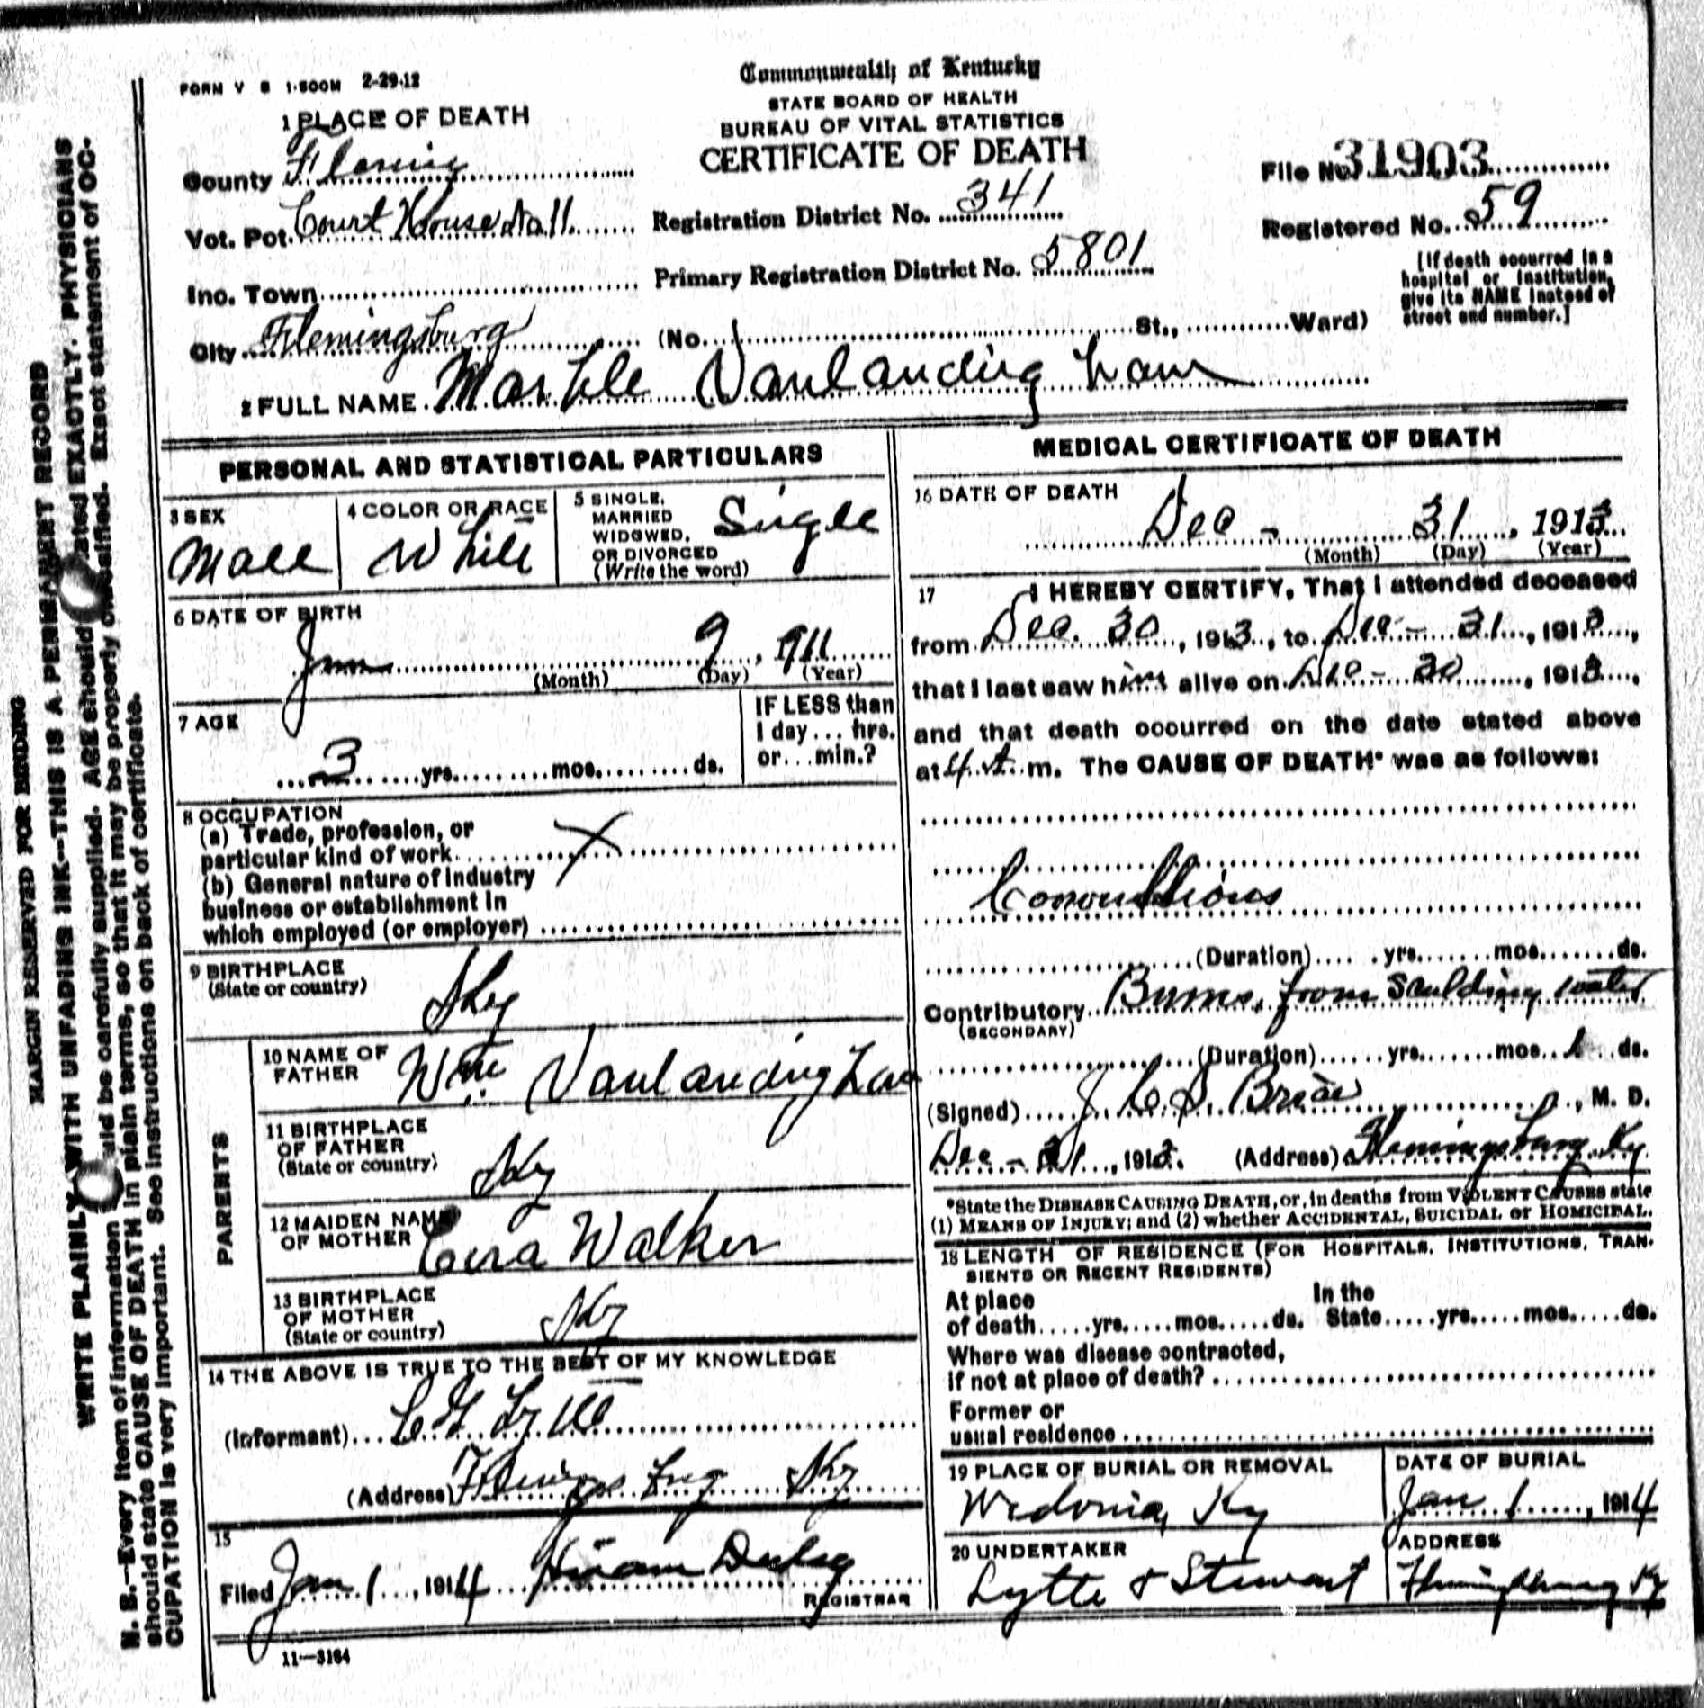 FORM V S 1-500M 2-29-12
Commonwealth of Kentucky
STATE BOARD OF HEALTH
BUREAU OF VITAL STATISTICS
CERTIFICATE OF DEATH
1 PLACE OF DEATH
County Fleming
Vot. Pct. Court House No 11
Inc. Town
City Flemingsburg (No. St., Ward)
Registration District No. 341
Primary Registration District No. 5801
File No. 31903
Registered No. 59
[If death occurred in a
hospital or institution,
give its NAME instead of
street and number.]
2 FULL NAME Vanlandingham
PERSONAL AND STATISTICAL PARTICULARS
3 SEX
Male
4 COLOR OR RACE
White
5 SINGLE,
MARRIED
WIDOWED,
OR DIVORCED
(Write the word)
Single
6 DATE OF BIRTH
9, 1911
(Month) (Day) (Year)
7 AGE
3 yrs. mos. ds.
IF LESS than
1 day... hrs.
or... min.?
8 OCCUPATION
(a) Trade, profession, or
particular kind of work X
(b) General nature of industry
business or establishment in
which employed (or employer)
9 BIRTHPLACE
(State or country)
Ky
PARENTS
10 NAME OF
FATHER
Wm Vanlandingham
11 BIRTHPLACE
OF FATHER
(State or country)
Ky
12 MAIDEN NAME
OF MOTHER
Walker
13 BIRTHPLACE
OF MOTHER
(State or country)
Ky
14 THE ABOVE IS TRUE TO THE BEST OF MY KNOWLEDGE
(Informant)
(Address) Flemingsburg Ky
15
Filed Jan 1, 1914 Hiram Duley
REGISTRAR
11—3164
MEDICAL CERTIFICATE OF DEATH
16 DATE OF DEATH
Dec - 31, 1913
(Month) (Day) (Year)
17 I HEREBY CERTIFY, That I attended deceased
from Dec. 30, 1913, to Dec - 31, 1913,
that I last saw him alive on Dec - 30, 1913,
and that death occurred on the date stated above
at 4 A m. The CAUSE OF DEATH* was as follows:
Convultions
(Duration) yrs. mos. ds.
Contributory Burns from Scalding water
(SECONDARY)
(Duration) yrs. mos. 1 ds.
(Signed) M. D.
Dec - 31, 1913. (Address) Flemingsburg Ky
*State the DISEASE CAUSING DEATH, or, in deaths from VIOLENT CAUSES state
(1) MEANS OF INJURY; and (2) whether ACCIDENTAL, SUICIDAL or HOMICIDAL.
18 LENGTH OF RESIDENCE (FOR HOSPITALS, INSTITUTIONS, TRAN-
SIENTS OR RECENT RESIDENTS)
At place
of death yrs. mos. ds.
In the
State yrs. mos. ds.
Where was disease contracted,
if not at place of death?
Former or
usual residence
19 PLACE OF BURIAL OR REMOVAL
Wedonia, Ky
DATE OF BURIAL
Jan 1, 1914
20 UNDERTAKER
Lytle & Stewart
ADDRESS
Flemingsburg Ky
MARGIN RESERVED FOR BINDING
WRITE PLAINLY WITH UNFADING INK—THIS IS A PERMANENT RECORD
N. B.—Every item of information should be carefully supplied. AGE should be stated EXACTLY. PHYSICIANS
should state CAUSE OF DEATH in plain terms, so that it may be properly classified. Exact statement of OC-
CUPATION is very important. See instructions on back of certificate.